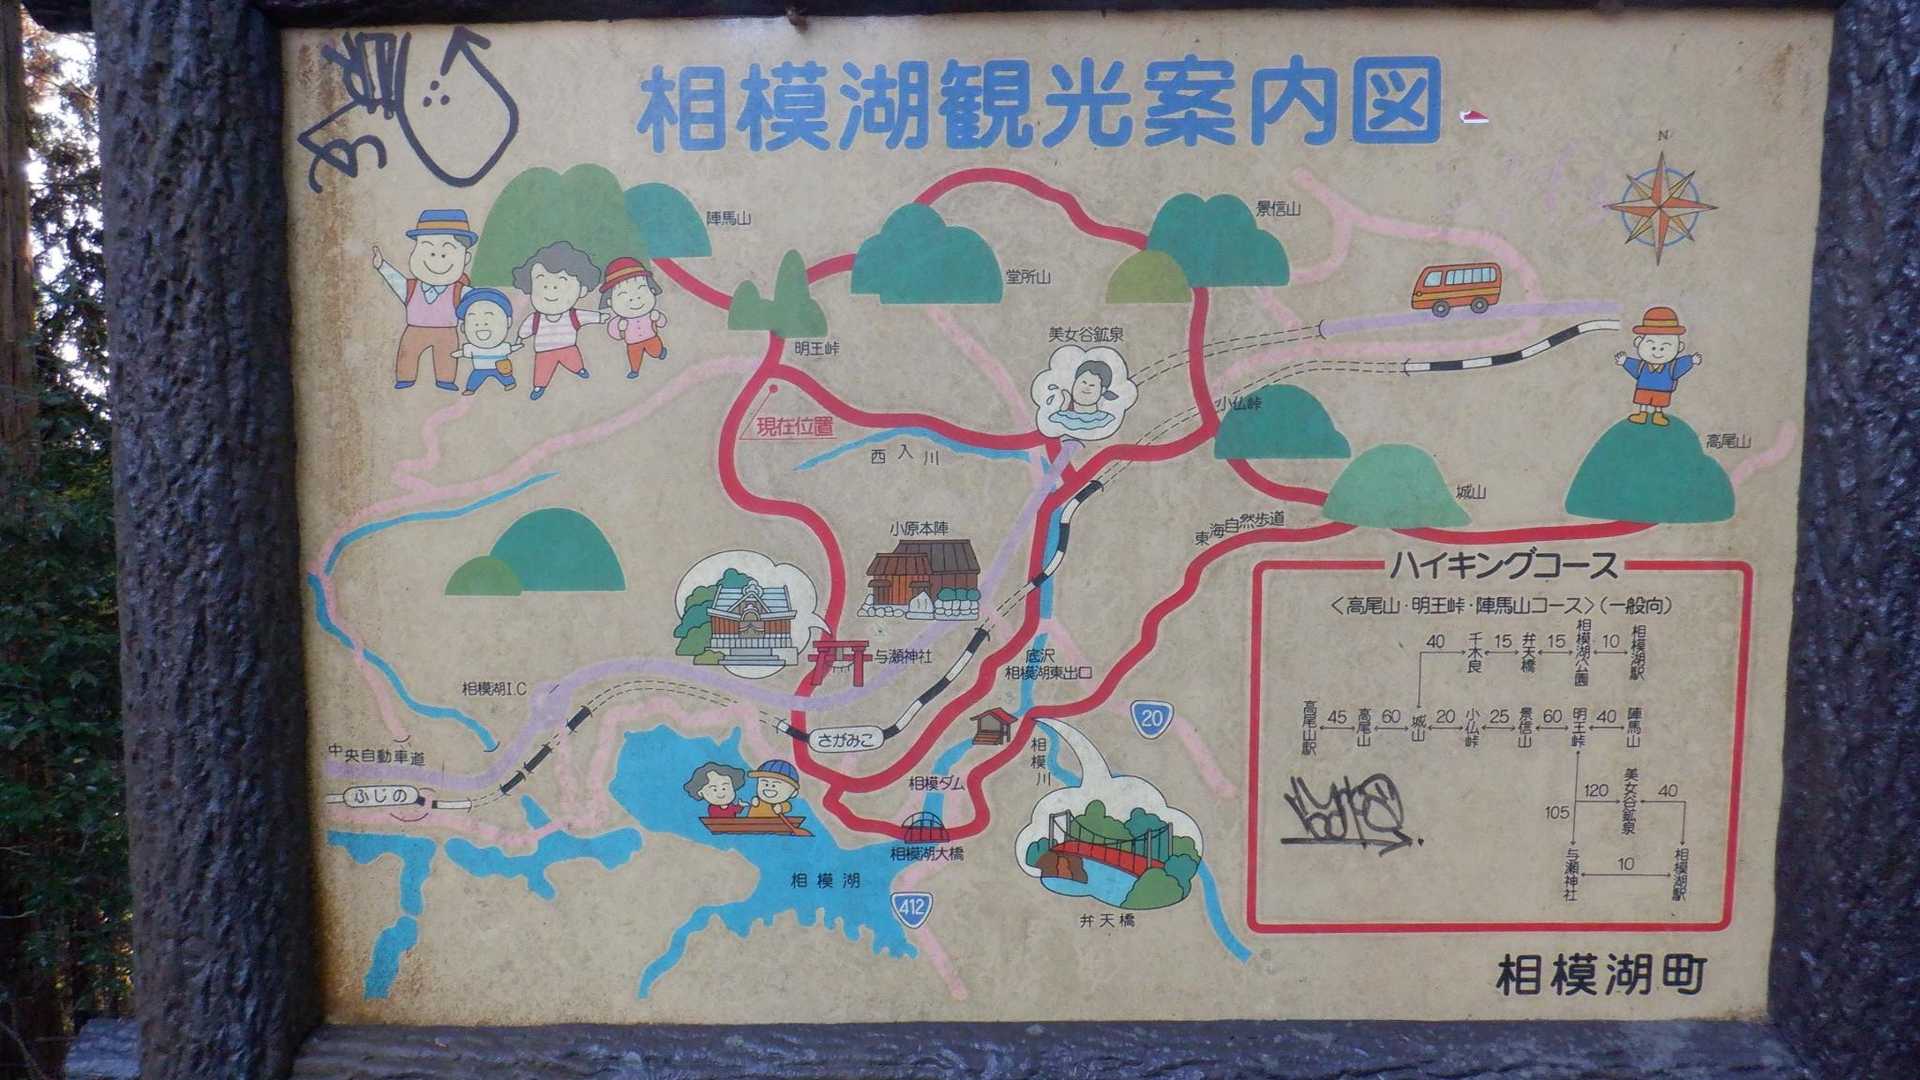 相模湖観光案内図
N
陣馬山
景信山
堂所山
美女谷鉱泉
明王峠
小仏峠
現在位置
高尾山
西入川
城山
小原本陣
東海自然歩道
与瀬神社
底沢
相模湖東出口
相模湖I.C
20
さがみこ
中央自動車道
相模川
相模ダム
ふじの
相模湖大橋
相模湖
412
弁天橋
ハイキングコース
<高尾山・明王峠・陣馬山コース>(一般向)
40 千木良 15 弁天橋 15 相模湖公園 10 相模湖駅
高尾山駅 45 高尾山 60 城山 20 小仏峠 25 景信山 60 明王峠 40 陣馬山
105 120 美女谷鉱泉 40
与瀬神社 10 相模湖駅
相模湖町